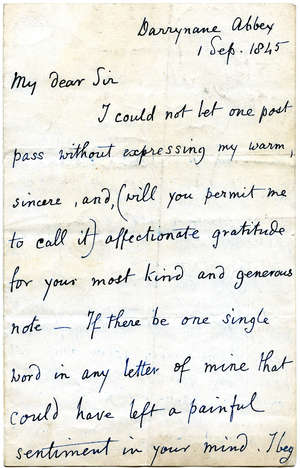 Darrynane Abbey
1 Sep. 1845
My dear Sir
I could not let one post
pass without expressing my warm,
sincere, and, (will you permit me
to call it) affectionate gratitude
for your most kind and generous
note — If there be one single
word in any letter of mine that
could have left a painful
sentiment in your mind. I beg